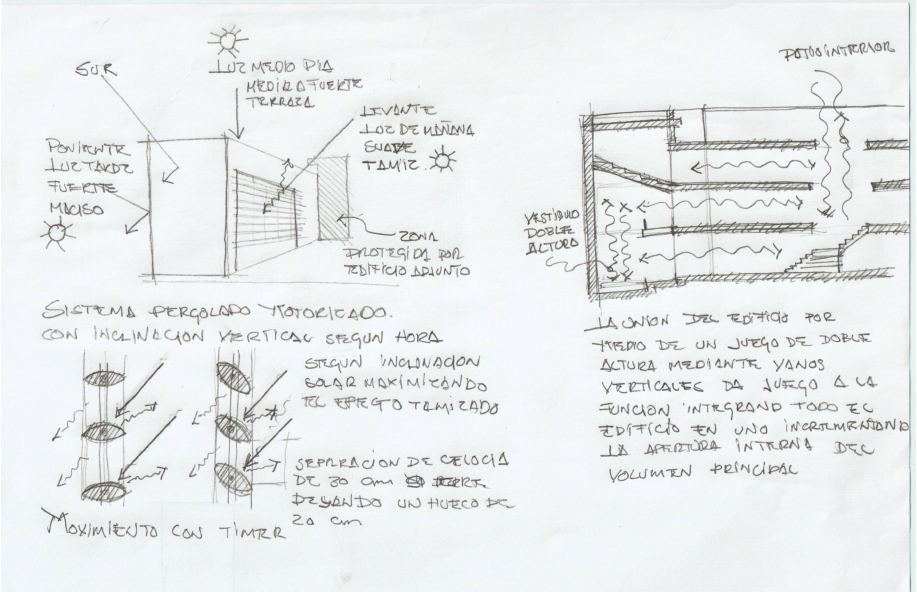 SUR
LUZ MEDIO DIA
MEDIA A FUERTE
TERRAZA
LEVANTE
LUZ DE MAÑANA
SUAVE
TAMIZ
PONIENTE
LUZ TARDE
FUERTE
MACISO
ZONA
PROTEGIDA POR
EDIFICIO ADJUNTO
SISTEMA PERGOLADO MOTORIZADO.
CON INCLINACION VERTICAL SEGUN HORA
SEGUN INCLINACION
SOLAR MAXIMIZANDO
EL EFECTO TAMIZADO
SEPARACION DE CELOCIA
DE 30 cm
DEJANDO UN HUECO DE
20 cm
MOVIMIENTO CON TIMER
PATIO INTERIOR
VESTIBULO
DOBLE
ALTURA
LA UNION DEL EDIFICIO POR
MEDIO DE UN JUEGO DE DOBLE
ALTURA MEDIANTE VANOS
VERTICALES DA JUEGO A LA
FUNCION INTEGRAND TODO EL
EDIFICIO EN UNO INCREMENTANDO
LA APERTURA INTERNA DEL
VOLUMEN PRINCIPAL